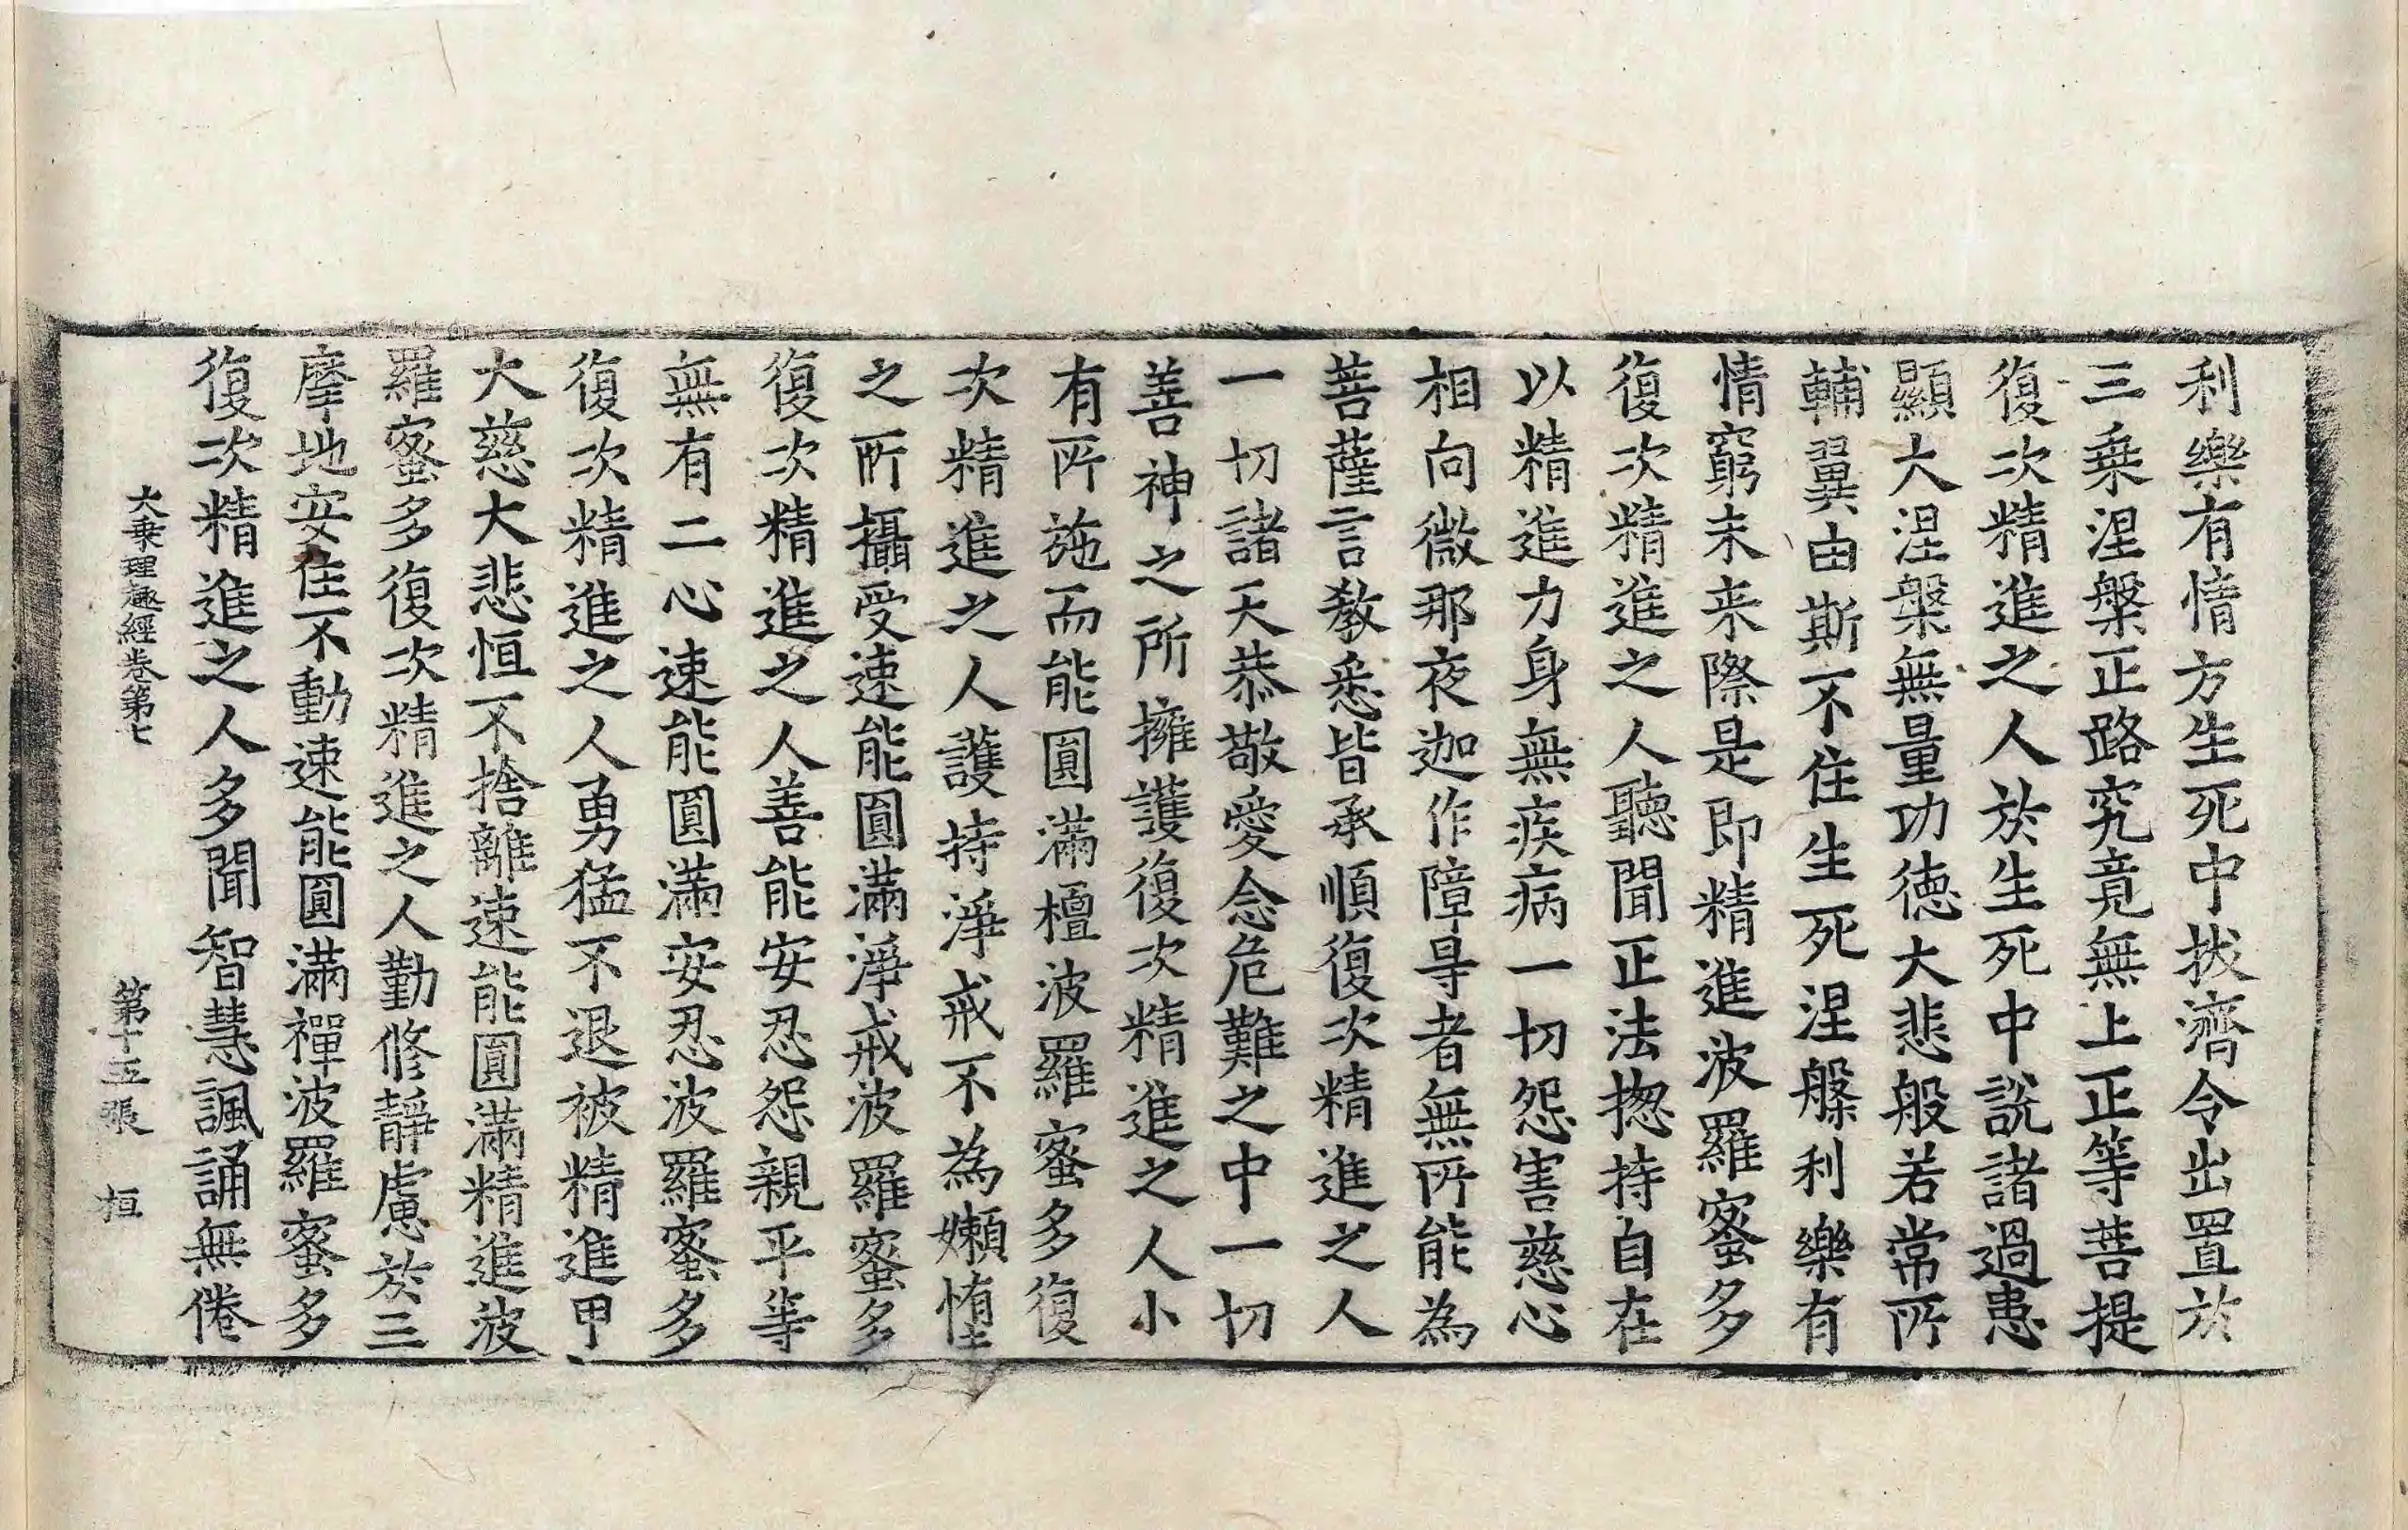 利樂有情方生死中拔濟令出置於
三乗涅槃正路究竟無上正等菩提
復次精進之人於生死中說諸過患
顯大涅槃無量功徳大悲般若常所
輔翼由斯不住生死涅槃利樂有
情窮未来際是即精進波羅蜜多
復次精進之人聽聞正法揔持自在
以精進力身無疾病一切怨害慈心
相向微那夜迦作障㝵者無所能為
菩薩言教悉皆承順復次精進之人
一切諸天恭敬愛念危難之中一切
善神之所擁護復次精進之人小
有所施而能圓滿檀波羅蜜多復
次精進之人護持淨戒不為嬾惰
之所攝受速能圓滿淨戒波羅蜜多
復次精進之人善能安忍怨親平等
無有二心速能圓滿安忍波羅蜜多
復次精進之人勇猛不退被精進甲
大慈大悲恒不捨離速能圓滿精進波
羅蜜多復次精進之人勤修靜慮於三
摩地安住不動速能圓滿禪波羅蜜多
復次精進之人多聞智慧諷誦無倦
大乗理趣經卷第七 第十五張 桓